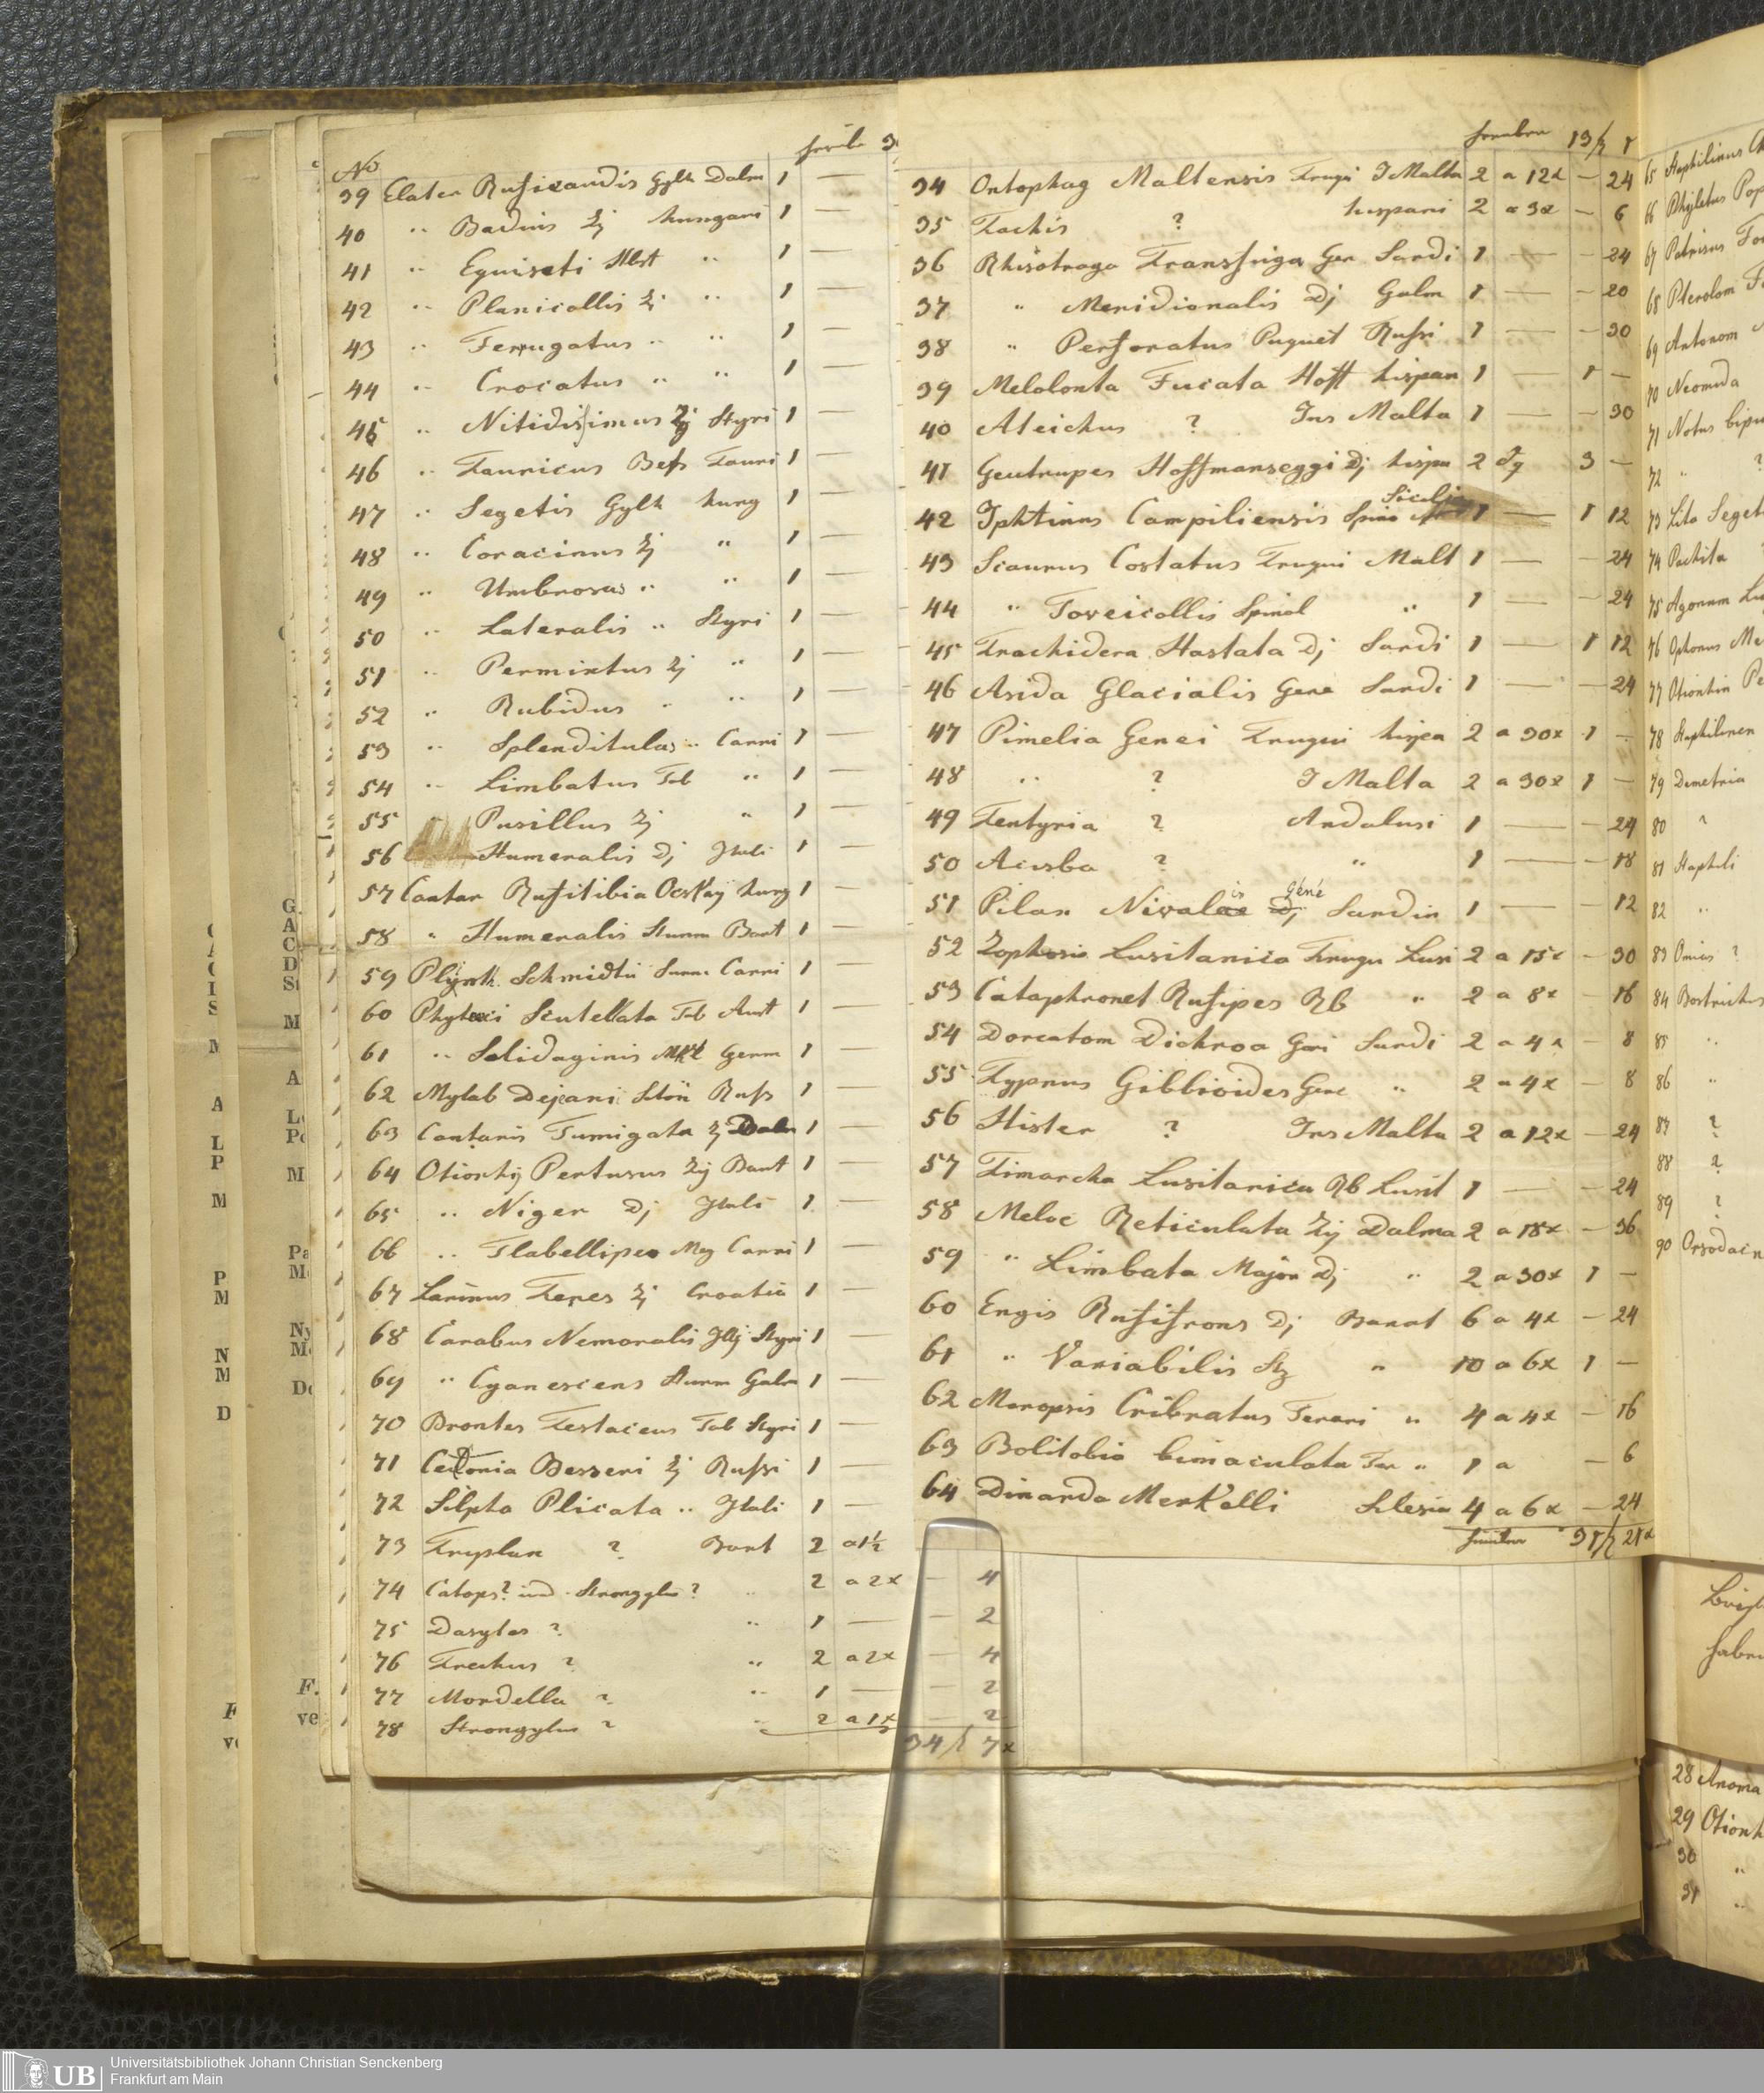 No
39 Elater Ruficaudis Gylh Dalm 1 —
40 " Badius Zj hungari 1 —
41 " Equiseti Hbst " 1 —
42 " Planicollis Zj " 1 —
43 " Ferrugatus " " 1 —
44 " Crocatus " " 1 —
45 " Nitidissimus Zj Styri 1 —
46 " Tauricus Bess Tauri 1 —
47 " Segetis Gylh hung 1 —
48 " Coracinus Zj " 1 —
49 " Umbrosus " " 1 —
50 " Lateralis " Styri 1 —
51 " Permixtus Zj " 1 —
52 " Rubidus " " 1 —
53 " Splenditulus " Carni 1 —
54 " Limbatus Fab " 1 —
55 " Pusillus Zj " 1 —
56 Humeralis Dj Itali 1 —
57 Cantar Rufitibia Ocskay hung 1 —
58 " Humeralis Sturm Bant 1 —
59 Plynth Schmidtii Carni 1 —
60 Scutellata Fab Aust 1 —
61 " Solidaginis Germ 1 —
62 Mylab Dejeani Russ 1 —
63 Cantaris Fumigata Zj Dalm 1 —
64 Otiorhij Pertusus Zij Bant 1 —
65 " Niger Dj Itali 1
66 " Flabellipes Meg Carni 1 —
67 Larinus Teres Zj Croatia 1 —
68 Carabus Nemoralis Illj Styri 1 —
69 " Cyanescens Sturm Galm 1 —
70 Brontes Testaceus Fab Styri 1 —
71 Cetonia Besseri Zj Russi 1 —
72 Silpha Plicata " Itali 1 —
73 Tryplax ? Bant 2 a 1½
74 Catops? und Strongylus? " 2 a 2x — 4
75 Dasytes ? " 1 — — 2
76 Trechus ? " 2 a 2x — 4
77 Mordella ? " 1 — — 2
78 Strongylus ? " 2 a 1x — 2
34 f 7x
13 f 1
34 Ontophag Maltensis Trugi I Malta 2 a 12x — 24
35 Tachis ? hispani 2 a 3x — 6
36 Rhisotroga Transfuga Gen Sardi 1 — — 24
37 " Meridionalis Dj Galm 1 — — 20
38 " Perforatus Puguet Russi 1 — — 30
39 Melolonta Fucata Hoff hispan 1 — 1 —
40 Ateichus ? Ins Malta 1 — — 30
41 Geutrupes Hoffmanseggi Dj hispa 2 3 —
42 Iphtimus Campiliensis Spino Sicilia 1 — 1 12
43 Scaurus Costatus Trugui Malt 1 — — 24
44 " Foveicollis Spinol " 1 — — 24
45 Trachidera Hastata Dj Sardi 1 — 1 12
46 Asida Glacialis Gene Sardi 1 — — 24
47 Pimelia Genei Trugui 2 a 30x 1 —
48 " ? I Malta 2 a 30x 1 —
49 Tentyria ? Andalusi 1 — — 24
50 ? " 1 — — 18
51 Nivalis Géné Sardin 1 — — 12
52 Zophosis Lusitanica Trugu Lusi 2 a 15x — 30
53 Cataphronet Rufipes Rb " 2 a 8x — 16
54 Dorcatom Dichroa Geni Sardi 2 a 4x — 8
55 Gibbioides Gene " 2 a 4x — 8
56 Hister ? Ins Malta 2 a 12x — 24
57 Timarcha Lusitanica Rb Lusit 1 — — 24
58 Meloe Reticulata Zij Dalma 2 a 18x — 36
59 " Limbata Major Dj " 2 a 30x 1 —
60 Engis Rufifrons Dj Banat 6 a 4x — 24
61 " Variabilis " 10 a 6x 1 —
62 Meropsis Cribratus Fereri " 4 a 4x — 16
63 Bolitobia bimaculata Fer " 1 a — 6
64 Dinarda Merkelli Silesia 4 a 6x — 24
31 f 21x
65 Staphilinus
66
67
68 Pterolom
69 Antonom
70 Neomida
71 Notus bipu
72 " ?
73 Lita Seget
74 Pachita
75 Agonum
76 Ophonus Me
77 Otiorhin Pe
78 Staphilinen
79 Demetria
80 "
81 Staphili
82 "
83 Omias ?
84 Bostrichus
85 "
86 "
87 ?
88 ?
89 ?
90 Orsodacn
28 Anoma
29 Otiorh
30 "
31 "
Universitätsbibliothek Johann Christian Senckenberg
Frankfurt am Main
UB